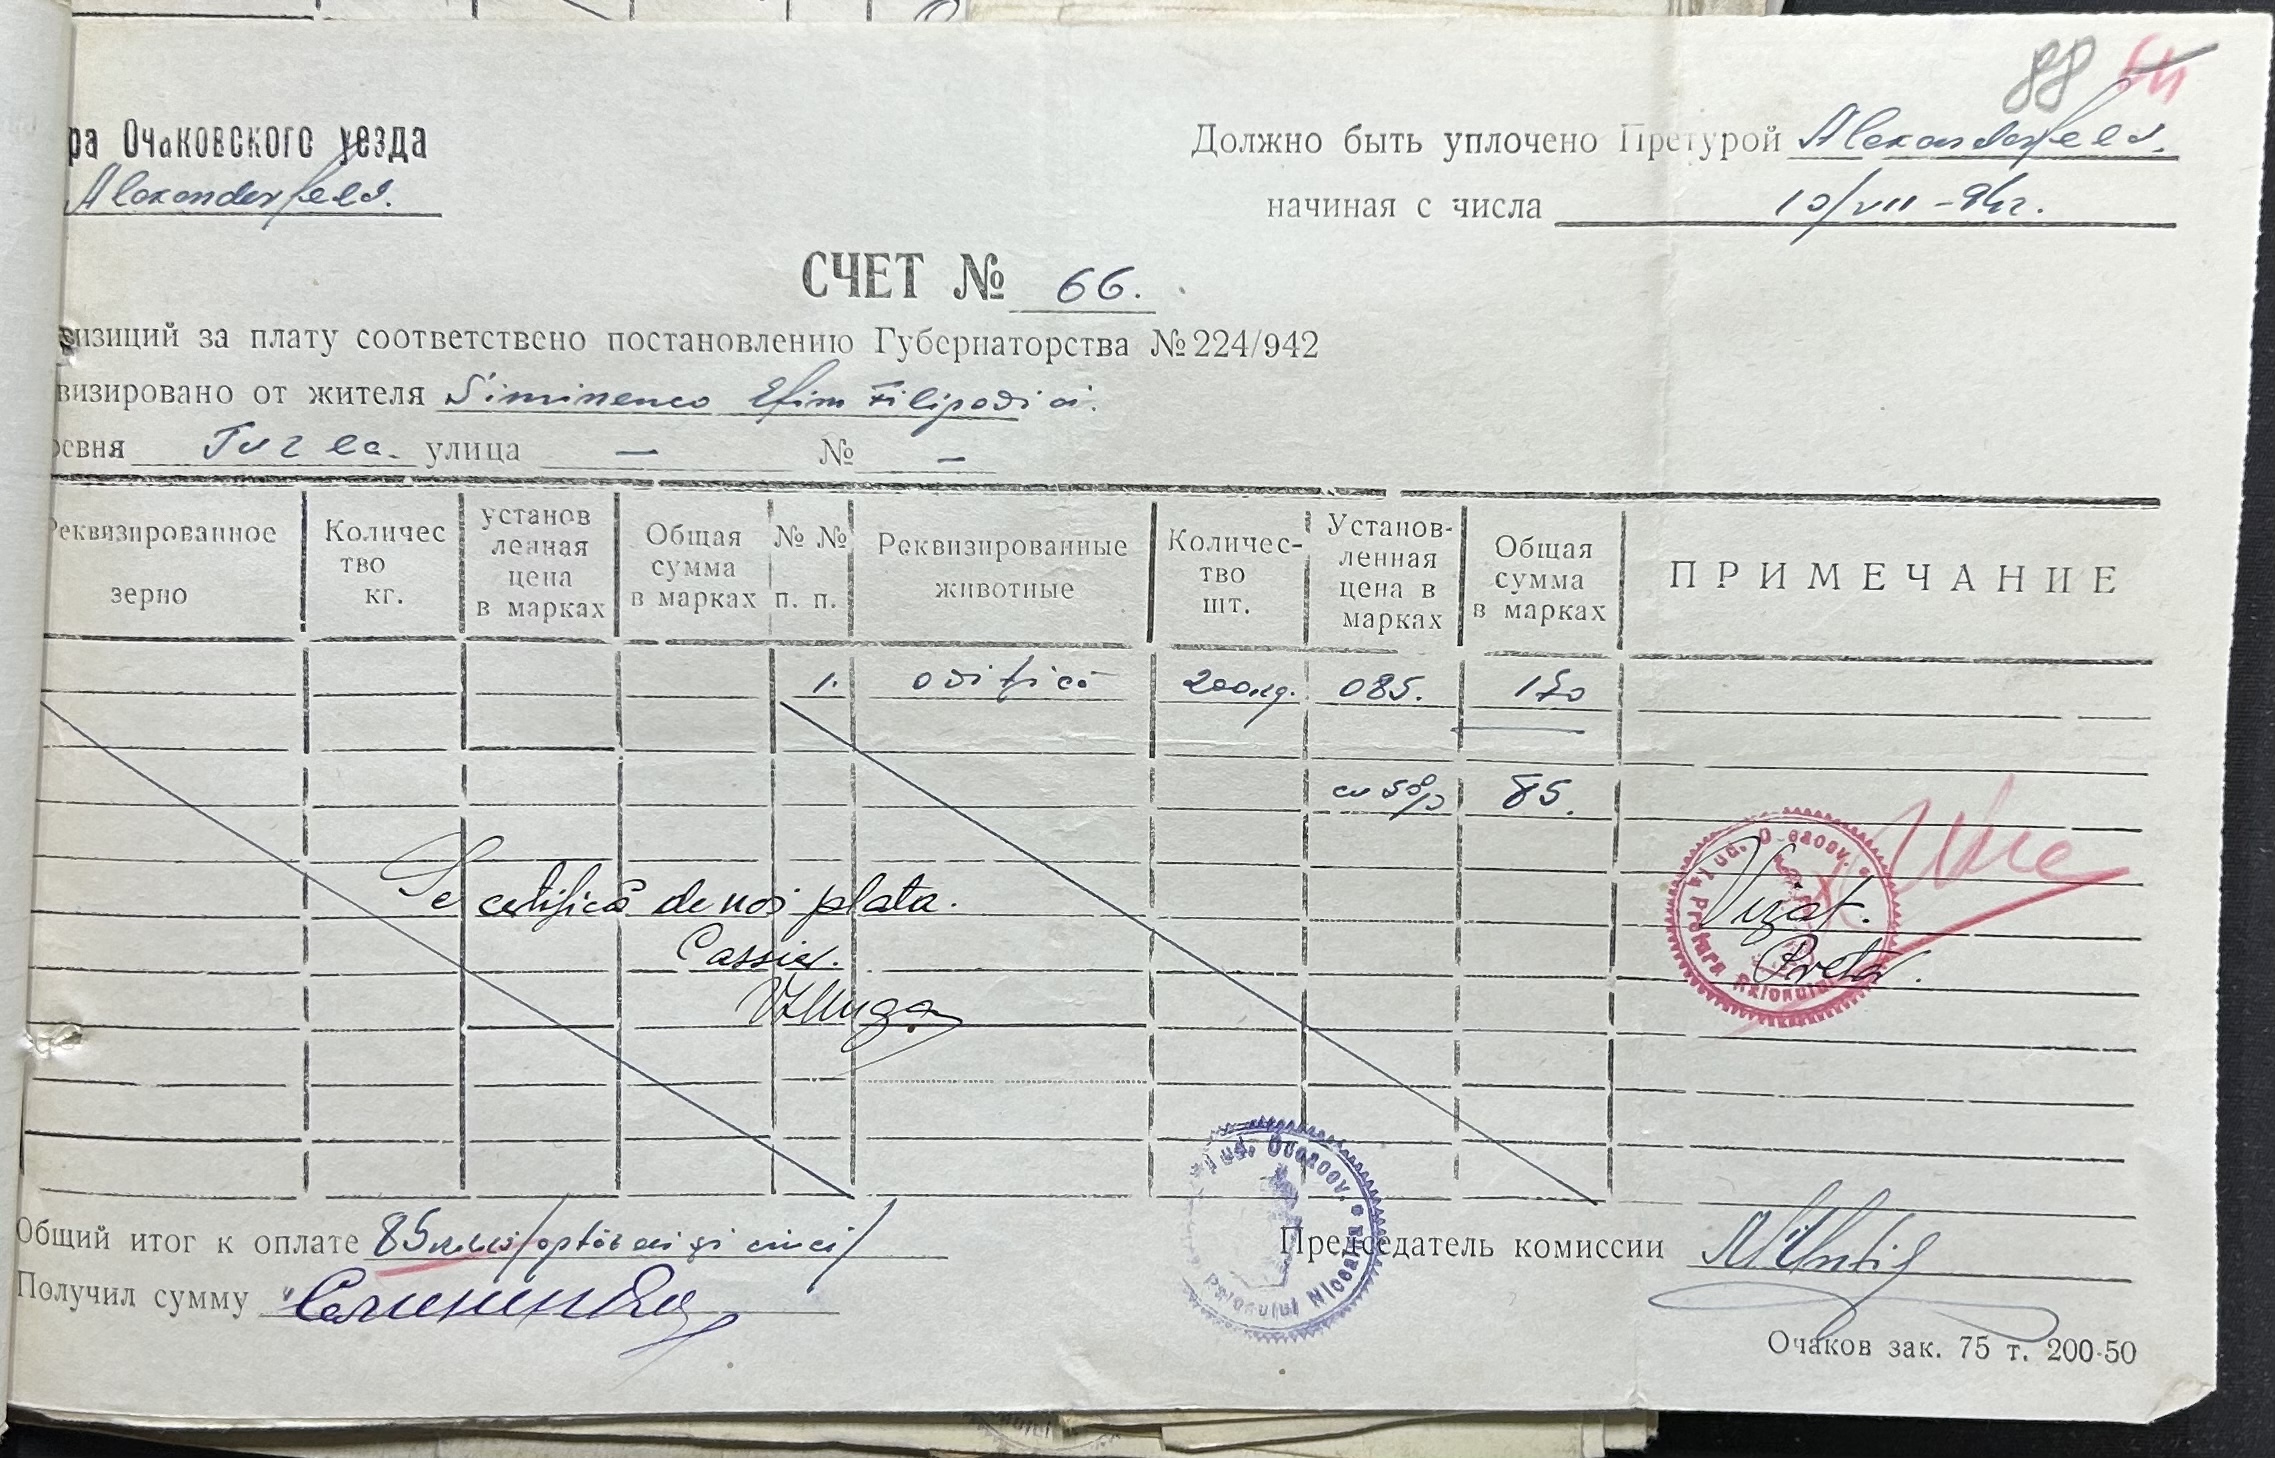 88 64
ра Очаковского уезда
Alexanderfeld.
Должно быть уплочено Претурой Alexanderfeld.
начиная с числа 10/VII-942.
СЧЕТ № 66.
визиций за плату соответствено постановлению Губернаторства № 224/942
визировано от жителя Siminenco Efim Filipovici.
ревня улица — № —
Реквизированное зерно
Количес тво кг.
установ ленная цена в марках
Общая сумма в марках
№ № п. п.
Реквизированные животные
Количес- тво шт.
Установ- ленная цена в марках
Общая сумма в марках
ПРИМЕЧАНИЕ
1. 200 kg. 085. 170
cu 50% 85.
Se certifică de noi plata.
Cassier.
Vizat.
Pretor.
Jud. Oceacov.
Pretura Raionului
Jud. Oceacov.
Raionului Nicoalea
Общий итог к оплате 85 /optzeci și cinci/
Получил сумму
Председатель комиссии
Очаков зак. 75 т. 200-50